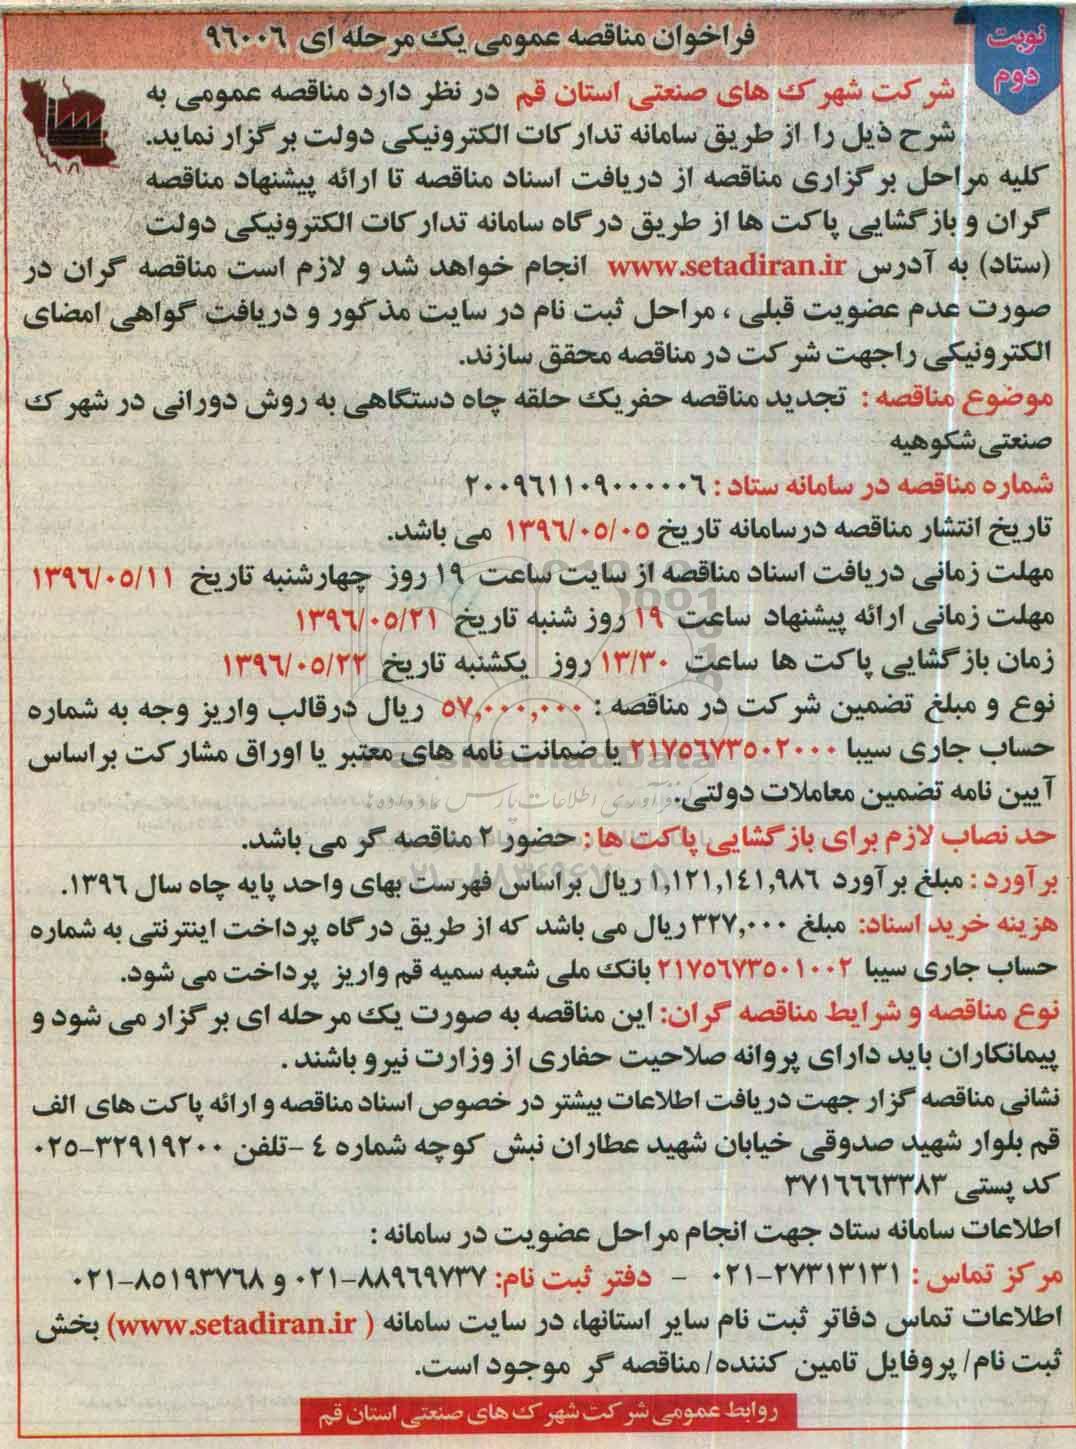 نوبت
دوم
فراخوان مناقصه عمومی یک مرحله ای ۹۶۰۰۶
شرکت شهرک های صنعتی استان قم در نظر دارد مناقصه عمومی به
شرح ذیل را از طریق سامانه تدارکات الکترونیکی دولت برگزار نماید.
کلیه مراحل برگزاری مناقصه از دریافت اسناد مناقصه تا ارائه پیشنهاد مناقصه
گران و بازگشایی پاکت ها از طریق درگاه سامانه تدارکات الکترونیکی دولت
(ستاد) به آدرس www.setadiran.ir انجام خواهد شد و لازم است مناقصه گران در
صورت عدم عضویت قبلی ، مراحل ثبت نام در سایت مذکور و دریافت گواهی امضای
الکترونیکی راجهت شرکت در مناقصه محقق سازند.
موضوع مناقصه : تجدید مناقصه حفریک حلقه چاه دستگاهی به روش دورانی در شهرک
صنعتی شکوهیه
شماره مناقصه در سامانه ستاد : ۲۰۰۹۶۱۱۰۹۰۰۰۰۰۶
تاریخ انتشار مناقصه درسامانه تاریخ ۱۳۹۶/۰۵/۰۵ می باشد.
مهلت زمانی دریافت اسناد مناقصه از سایت ساعت ۱۹ روز چهارشنبه تاریخ ۱۳۹۶/۰۵/۱۱
مهلت زمانی ارائه پیشنهاد ساعت ۱۹ روز شنبه تاریخ ۱۳۹۶/۰۵/۲۱
زمان بازگشایی پاکت ها ساعت ۱۳/۳۰ روز یکشنبه تاریخ ۱۳۹۶/۰۵/۲۲
نوع و مبلغ تضمین شرکت در مناقصه : ۵۷,۰۰۰,۰۰۰ ریال درقالب واریز وجه به شماره
حساب جاری سیبا ۲۱۷۵۶۷۳۵۰۲۰۰۰ یا ضمانت نامه های معتبر یا اوراق مشارکت براساس
آیین نامه تضمین معاملات دولتی.
حد نصاب لازم برای بازگشایی پاکت ها : حضور ۲ مناقصه گر می باشد.
برآورد : مبلغ برآورد ۱,۱۲۱,۱۴۱,۹۸۶ ریال براساس فهرست بهای واحد پایه چاه سال ۱۳۹۶.
هزینه خرید اسناد: مبلغ ۳۲۷,۰۰۰ ریال می باشد که از طریق درگاه پرداخت اینترنتی به شماره
حساب جاری سیبا ۲۱۷۵۶۷۳۵۰۱۰۰۲ بانک ملی شعبه سمیه قم واریز پرداخت می شود.
نوع مناقصه و شرایط مناقصه گران: این مناقصه به صورت یک مرحله ای برگزار می شود و
پیمانکاران باید دارای پروانه صلاحیت حفاری از وزارت نیرو باشند .
نشانی مناقصه گزار جهت دریافت اطلاعات بیشتر در خصوص اسناد مناقصه و ارائه پاکت های الف
قم بلوار شهید صدوقی خیابان شهید عطاران نبش کوچه شماره ۴ -تلفن ۳۲۹۱۹۲۰۰-۰۲۵
کد پستی ۳۷۱۶۶۶۳۳۸۳
اطلاعات سامانه ستاد جهت انجام مراحل عضویت در سامانه :
مرکز تماس : ۲۷۳۱۳۱۳۱-۰۲۱ - دفتر ثبت نام: ۸۸۹۶۹۷۳۷-۰۲۱ و ۸۵۱۹۳۷۶۸-۰۲۱
اطلاعات تماس دفاتر ثبت نام سایر استانها، در سایت سامانه ( www.setadiran.ir) بخش
ثبت نام/ پروفایل تامین کننده/ مناقصه گر موجود است.
روابط عمومی شرکت شهرک های صنعتی استان قم